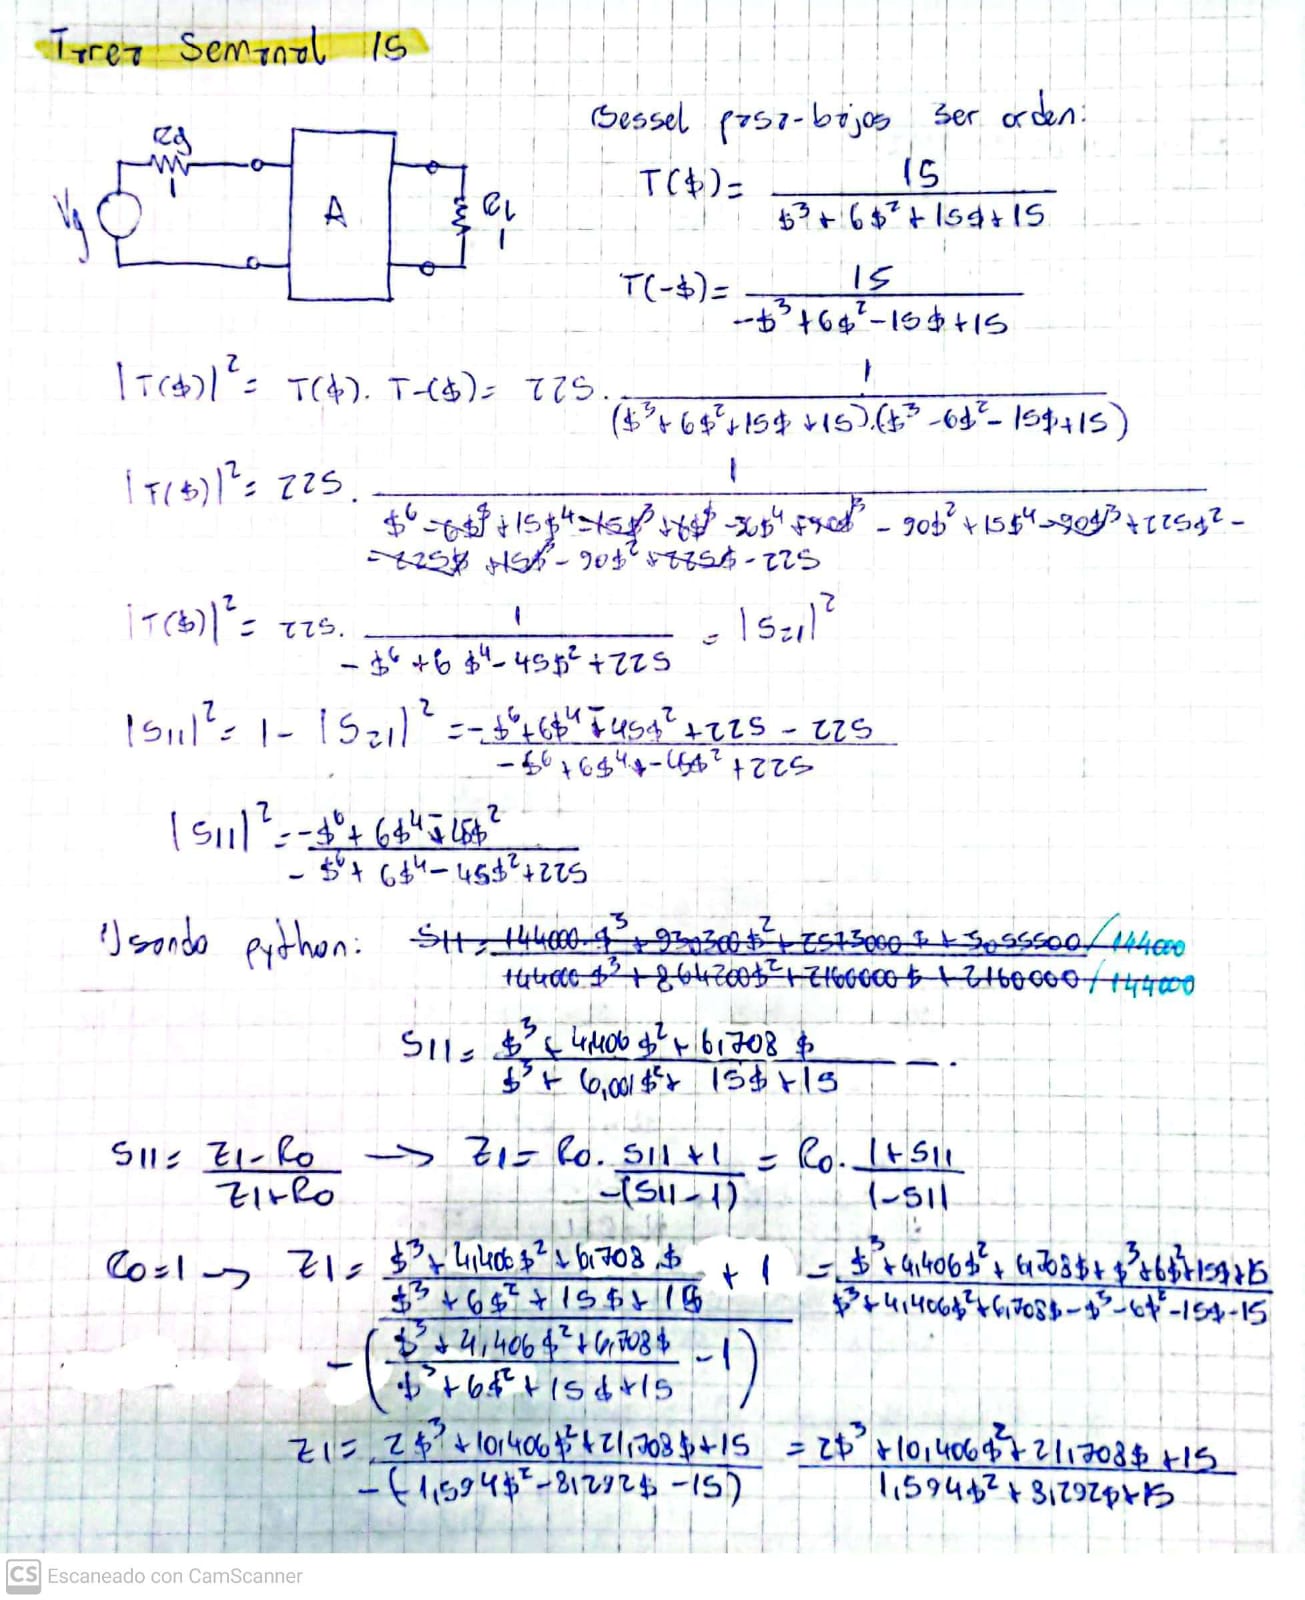 Tarea Semanal 15
Rg
1
Vg
A
RL
1
Bessel pasa-bajos 3er orden:
T($) = 15 / ($³ + 6$² + 15$ + 15)
T(-$) = 15 / (-$³ + 6$² - 15$ + 15)
|T($)|² = T($). T-($) = 225. 1 / (($³ + 6$² + 15$ + 15).($³ - 6$² - 15$ + 15))
|T($)|² = 225. 1 /
- 90$² + 15$⁴ - 90$³ + 225$² -
- 90$² + 225$ - 225
|T($)|² = 225. 1 / (-$⁶ + 6$⁴ - 45$² + 225) = |S21|²
|S11|² = 1 - |S21|² = (-$⁶ + 6$⁴ - 45$² + 225 - 225) / (-$⁶ + 6$⁴ - 45$² + 225)
|S11|² = (-$⁶ + 6$⁴ - 45$²) / (-$⁶ + 6$⁴ - 45$² + 225)
Usando python: S11 = (144000 $³ + 930300 $² + 2573000 $ + 3055500 / 144000) / (144000 $³ + 864200 $² + 2160000 $ + 2160000 / 144000)
S11 = ($³ + 4,406 $² + 6,708 $) / ($³ + 6,001 $² + 15$ + 15) .
S11 = (Z1 - Ro) / (Z1 + Ro) → Z1 = Ro. (S11 + 1) / (-(S11 - 1)) = Ro. (1 + S11) / (1 - S11)
Ro = 1 → Z1 = (($³ + 4,406 $² + 6,708 $) / ($³ + 6$² + 15$ + 15) + 1) / (-(($³ + 4,406 $² + 6,708 $) / ($³ + 6$² + 15$ + 15) - 1)) = ($³ + 4,406$² + 6,708$ + $³ + 6$² + 15$ + 15) / ($³ + 4,406$² + 6,708$ - $³ - 6$² - 15$ - 15)
Z1 = (2$³ + 10,406$² + 21,708$ + 15) / (-(-1,594$² - 8,292$ - 15)) = (2$³ + 10,406$² + 21,708$ + 15) / (1,594$² + 8,292$ + 15)
CS Escaneado con CamScanner